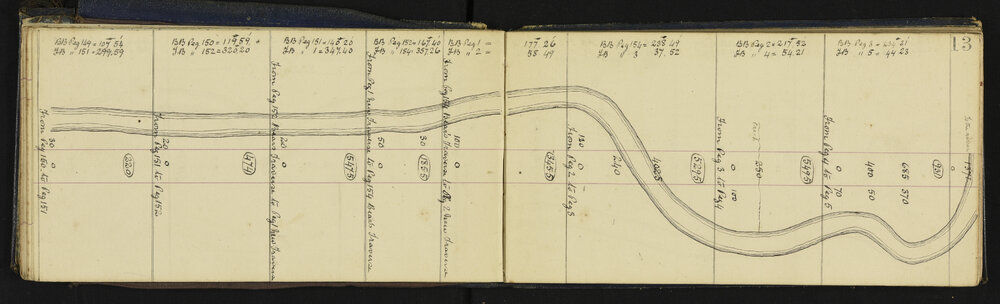 BB Peg 149 = 107° 54
FB " 151 = 299.59
BB Peg 150 = 119° 59
FB " 152 = 320 20
BB Peg 151 = 140° 20
FB " 1 = 347.40
BB Peg 152 = 167° 40
FB " 154 = 357 26
BB Peg 1 = 177° 26
FB " 2 = 58 49
BB Peg 154 = 238 49
FB " 3 37.52
BB Peg 2 = 217° 52
FB " 4 = 54.21
BB Peg 3 = 234° 21
FB " 5 = 44 23
13
From Peg 150 to Peg 151
30
0
220
From Peg 151 to Peg 152
20
0
474
From Peg 152 Bear's Traverse to Peg 1 New Traverse
20
0
547.5
From Peg 1 New Traverse to Peg 154 Bear's Traverse
50
0
185.5
30
From Peg 154 Bear's Traverse to Peg 2 New Traverse
100
0
345.5
From Peg 2 to Peg 3
130
0
240
402.5
529.5
From Peg 3 to Peg 4
0
100
250
549.5
From Peg 4 to Peg 5
0
70
400
50
685
370
930